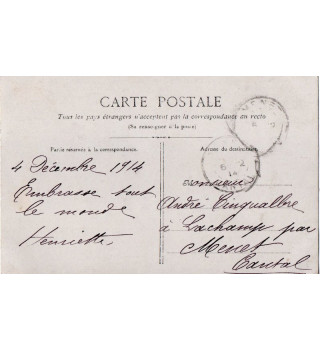 CARTE POSTALE
Tous les pays étrangers n'acceptent pas la correspondance au recto
(Se renseigner à la poste)
Partie réservée à la correspondance.
Adresse du destinataire.
4 Décembre 1914
Embrasse tout
le monde
Henriette
Monsieur
André Cinqualbre
à Lachamp par
Menet
Cantal
MENET